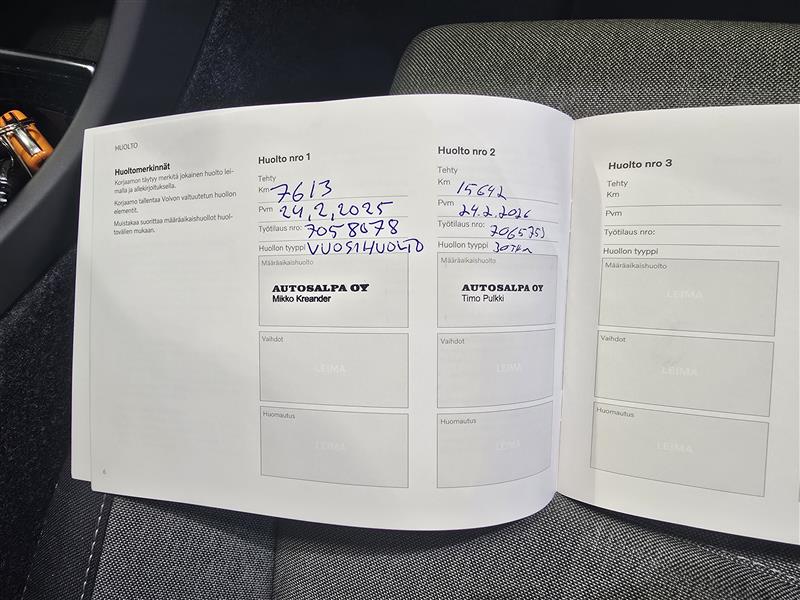 HUOLTO
Huoltomerkinnät
Korjaamon täytyy merkitä jokainen huolto lei-
malla ja allekirjoituksella.
Korjaamo tallentaa Volvon valtuutetun huollon
elementit.
Muistakaa suorittaa määräaikaishuollot huol-
tovälien mukaan.
6
Huolto nro 1
Tehty
Km 7613
Pvm 24,2,2025
Työtilaus nro: 7058678
Huollon tyyppi VUOSIHUOLTO
Määräaikaishuolto
AUTOSALPA OY
Mikko Kreander
Vaihdot
LEIMA
Huomautus
LEIMA
Huolto nro 2
Tehty
Km 15642
Pvm 24.2.2026
Työtilaus nro: 7065753
Huollon tyyppi 30TKM
Määräaikaishuolto
AUTOSALPA OY
Timo Pulkki
Vaihdot
LEIMA
Huomautus
LEIMA
Huolto nro 3
Tehty
Km
Pvm
Työtilaus nro:
Huollon tyyppi
Määräaikaishuolto
LEIMA
Vaihdot
LEIMA
Huomautus
LEIMA